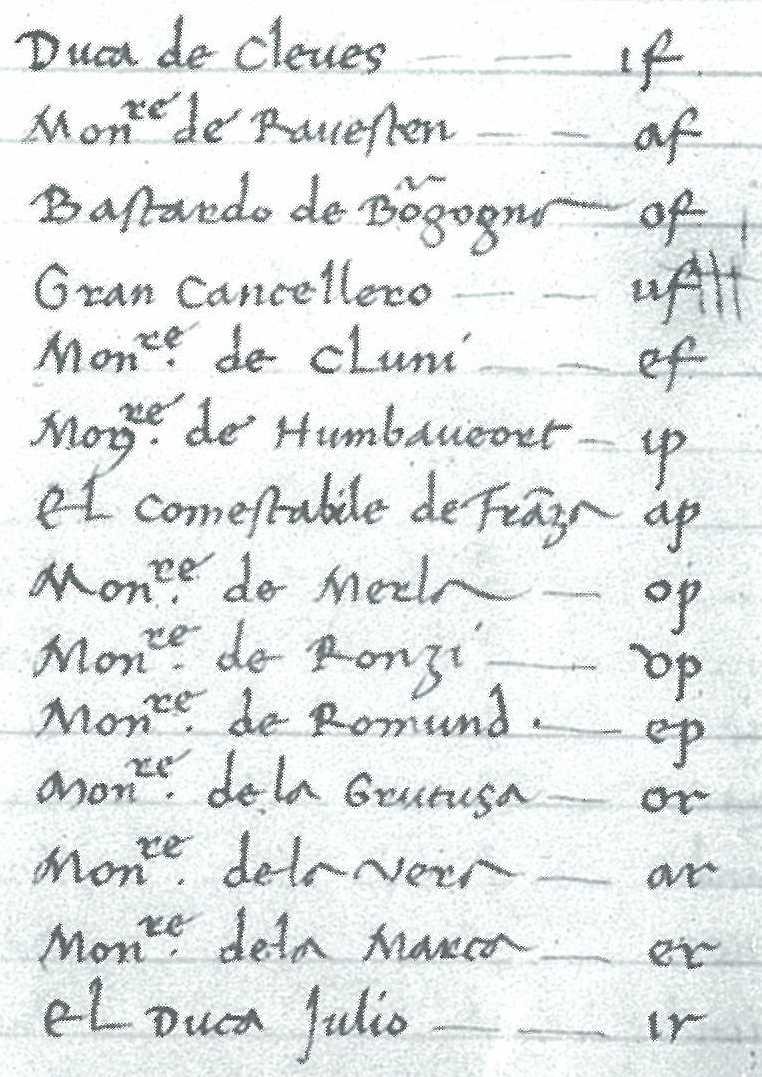 Duca de Cleues — — if
Monre de Rauesten — — af
Bastardo de Bõgogna — of
Gran Cancellero — — uf
Monre. de Cluni — — ef
Monre. de Humbaucort — ip
el Comestabile de Frãza ap
Monre. de Merla — op
Monre. de Ronzi — vp
Monre. de Romund. — ep
Monre. de la Grutusa — or
Monre. de la Vera — ar
Monre. de la Marca — er
el Duca Julio — — ir